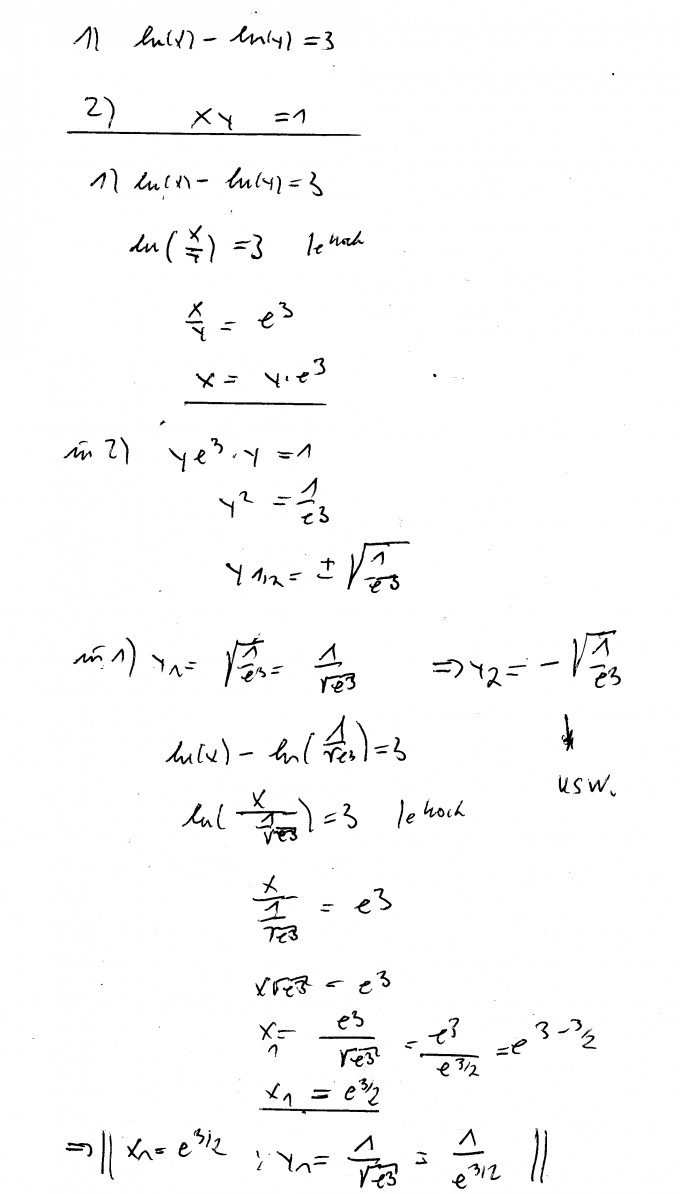 1) ln(x) - ln(y) = 3
2) xy = 1
1) ln(x) - ln(y) = 3
ln(x/y) = 3 | e hoch
x/y = e^3
x = y·e^3
in 2) ye^3·y = 1
y^2 = 1/e^3
y1,2 = ± √(1/e^3)
in 1) y1 = √(1/e^3) = 1/√e^3 ⇒ y2 = -√(1/e^3)
↓
ln(x) - ln(1/√e^3) = 3
usw.
ln(x/(1/√e^3)) = 3 | e hoch
x/(1/√e^3) = e^3
x√e^3 = e^3
x1 = e^3/√e^3 = e^3/e^3/2 = e^3-3/2
x1 = e^3/2
⇒ || x1 = e^3/2 ; y1 = 1/√e^3 = 1/e^3/2 ||